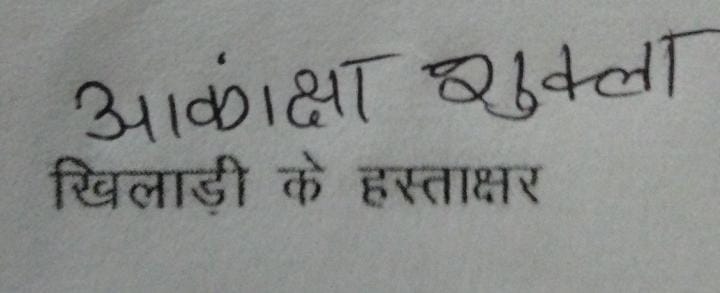 आकांक्षा शुक्ला
खिलाड़ी के हस्ताक्षर